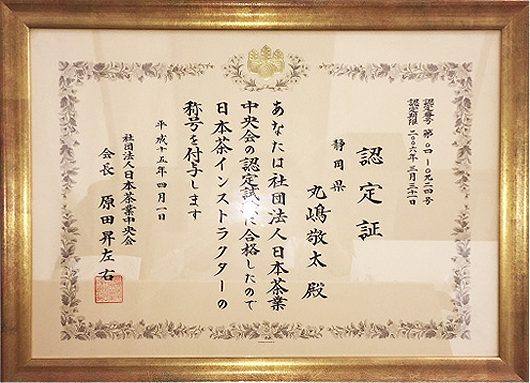 認定番号 第〇四-〇九二四号
認定期限 二〇〇六年 三月三十一日
認定証
静岡県
丸嶋敬太殿
あなたは社団法人日本茶業
中央会の認定試験に合格したので
日本茶インストラクターの
称号を付与します
平成十五年四月一日
社団法人日本茶業中央会
会長 原田昇左右